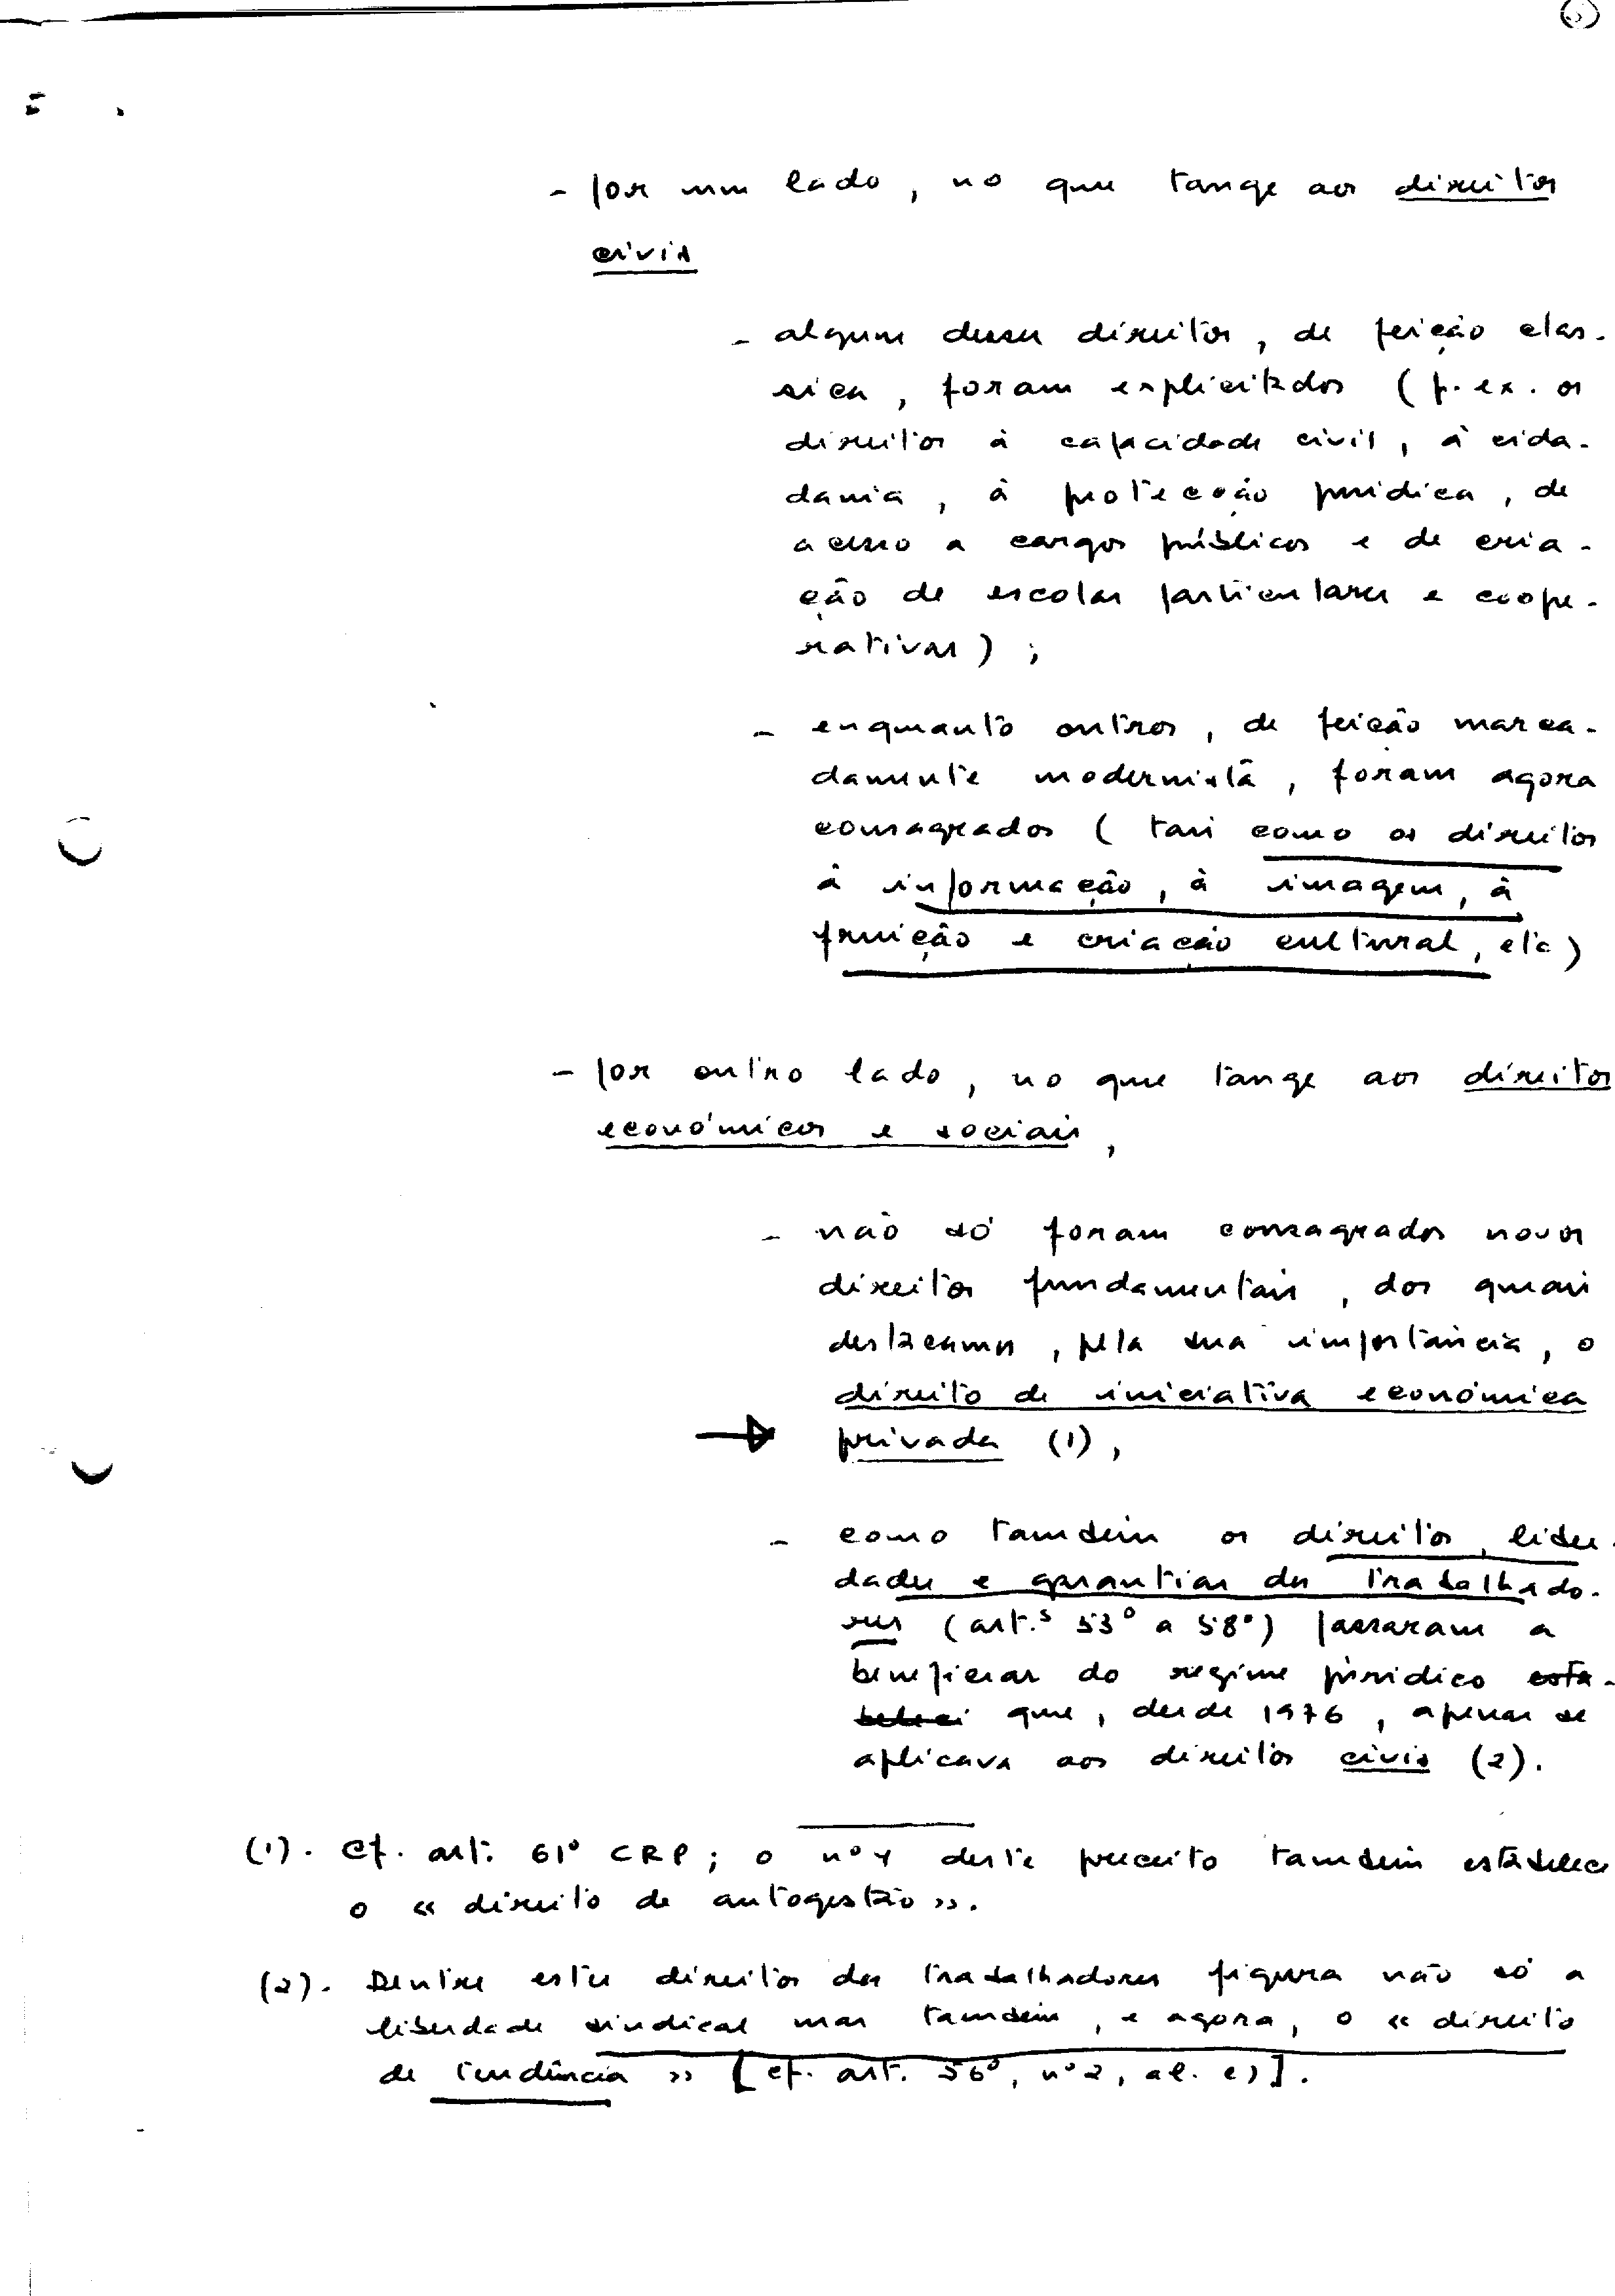 - por um lado, no que tange aos direitos
civis
- alguns desses direitos, de feição clás-
sica, foram explicitados (p. ex. os
direitos à capacidade civil, à cida-
dania, à protecção jurídica, de
acesso a cargos públicos e de cria-
ção de escolas particulares e coope-
rativas);
- enquanto outros, de feição marca-
damente modernista, foram agora
consagrados (tais como os direitos
à informação, à imagem, à
fruição e criação cultural, etc)
- por outro lado, no que tange aos direitos
económicos e sociais,
- não só foram consagrados novos
direitos fundamentais, dos quais
destacamos, pela sua importância, o
direito de iniciativa económica
privada (1),
- como também os direitos, liber-
dades e garantias dos trabalhado-
res (art.s 53º a 58º) passaram a
beneficiar do regime jurídico esta-
beleci que, desde 1976, apenas se
aplicava aos direitos civis (2).
(1). Cf. art. 61º CRP; o nº 4 deste preceito também estabelece
o «direito de autogestão».
(2). Dentre estes direitos dos trabalhadores figura não só a
liberdade sindical mas também, e agora, o «direito
de tendência» [cf. art. 56º, nº 2, al. e)].